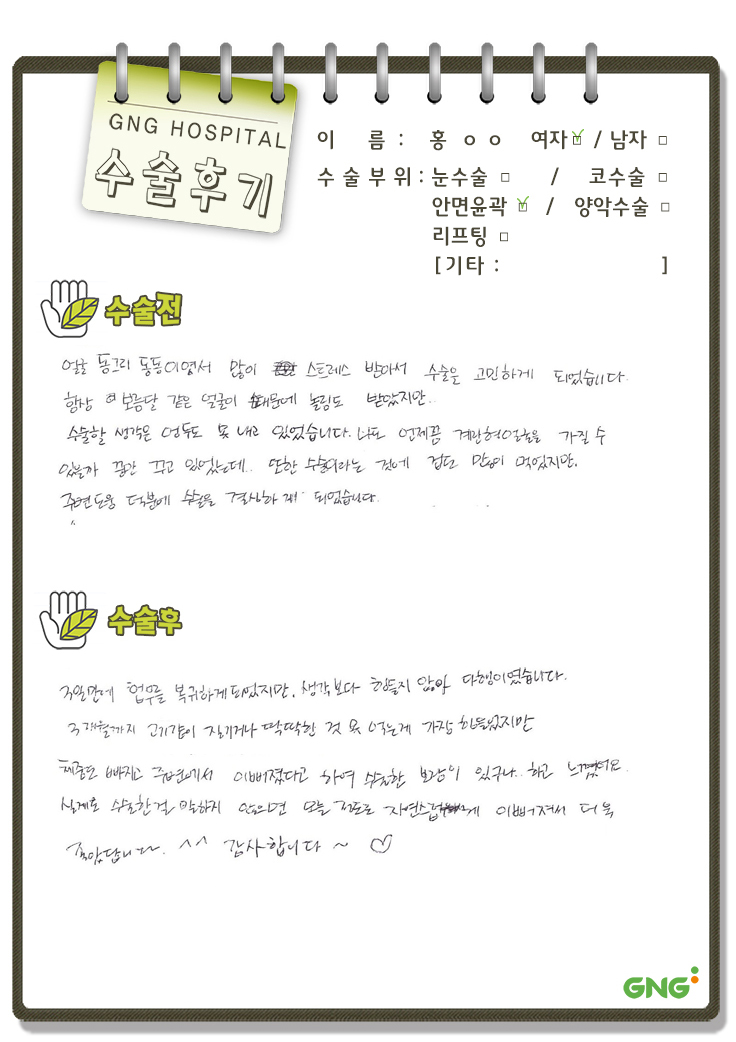 GNG HOSPITAL
수술후기
이 름 : 홍 ㅇ ㅇ 여자 ☑ / 남자 □
수술부위 : 눈수술 □ / 코수술 □
안면윤곽 ☑ / 양악수술 □
리프팅 □
[기타 : ]
수술전
얼굴 동그리 통통이였서 많이 스트레스 받아서 수술은 고민하게 되었습니다.
항상 보름달 같은 얼굴이 때문에 놀림도 받았지만..
수술할 생각은 엄두도 못 내고 있었습니다. 나도 언제쯤 계란형얼굴을 가질 수
있을까 꿈만 꾸고 있었는데.. 또한 수술이라는 것에 겁도 많이 먹었지만,
주변도움 덕분에 수술을 결심하게 되었습니다.
수술후
3일만에 업무를 복귀하게되었지만, 생각보다 힘들지 않아 다행이였습니다.
3개월까지 고기같이 질기거나 딱딱한 것 못 먹는게 가장 힘들었지만
체중도 빠지고 주변에서 이뻐졌다고 하여 수술한 보람이 있구나.. 하고 느꼈어요.
실제로 수술한걸 말하지 않으면 모를 정도로 자연스럽게 이뻐져서 더욱
좋았답니다. ^^ 감사합니다 ~ ♡
GNG